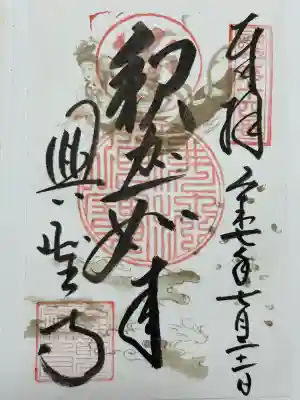 奉拝
令和七年七月二十一日
釈迦如来
興聖寺